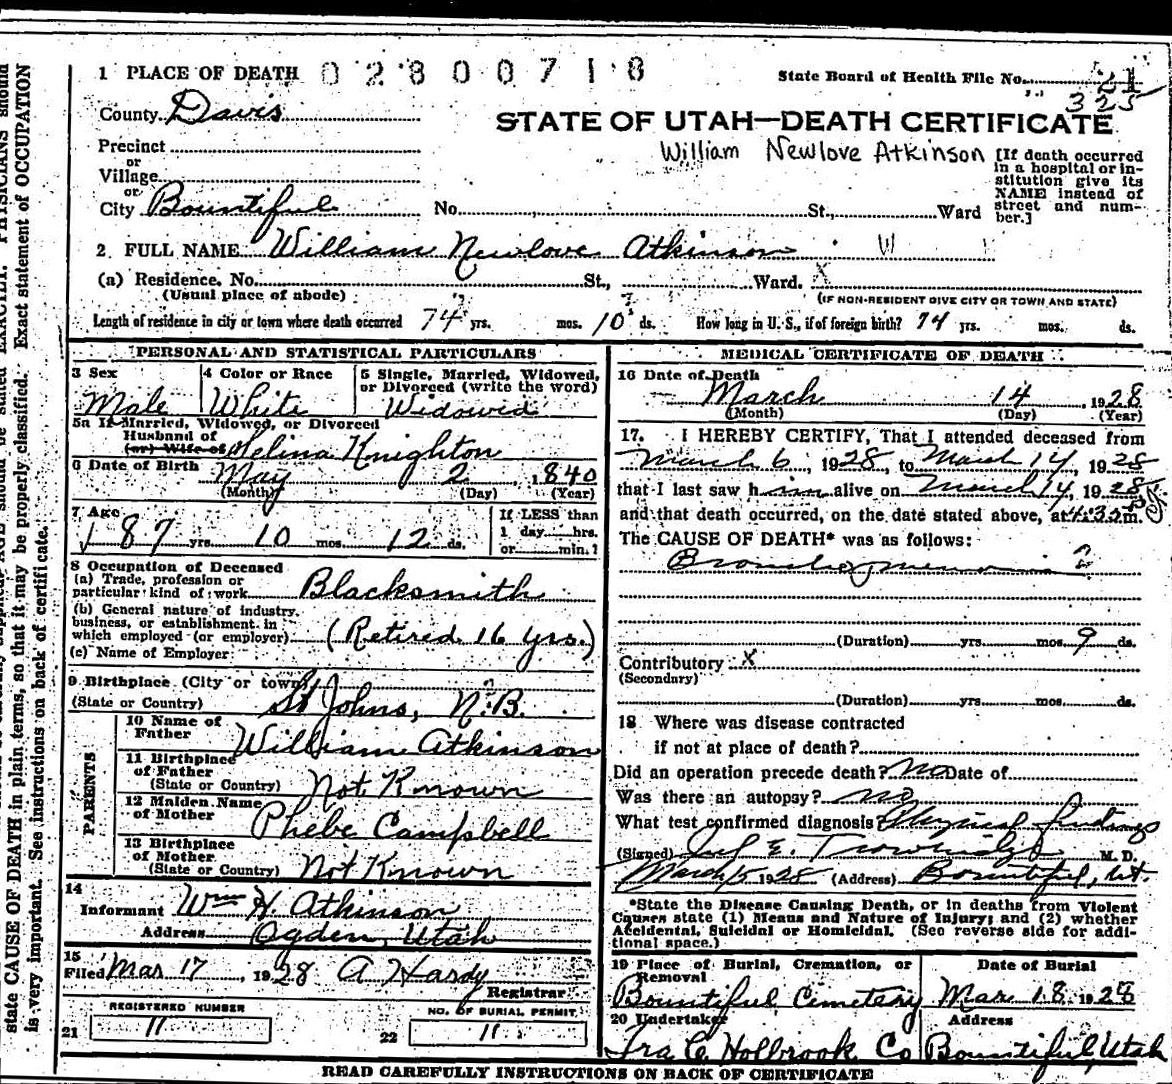 1 PLACE OF DEATH 0280071 8 State Board of Health File No. 21
325
County Davis
STATE OF UTAH—DEATH CERTIFICATE
Precinct
William Newlove Atkinson
or
Village
or
City Bountiful No. St., Ward
[If death occurred
in a hospital or in-
stitution give its
NAME instead of
street and num-
ber.]
2 FULL NAME William Newlove Atkinson W
(a) Residence. No. St., Ward. X
(Usual place of abode) (IF NON-RESIDENT GIVE CITY OR TOWN AND STATE)
Length of residence in city or town where death occurred 74 yrs. mos. 10 ds. How long in U. S., if of foreign birth? 74 yrs. mos. ds.
PERSONAL AND STATISTICAL PARTICULARS
3 Sex 4 Color or Race 5 Single, Married, Widowed,
or Divorced (write the word)
Male White Widowed
5a If Married, Widowed, or Divorced
Husband of
(or) Wife of Selina Knighton
6 Date of Birth May 2, 1840
(Month) (Day) (Year)
7 Age If LESS than
1 day hrs.
or min.?
87 yrs. 10 mos. 12 ds.
8 Occupation of Deceased
(a) Trade, profession or
particular kind of work Blacksmith
(b) General nature of industry,
business, or establishment in
which employed (or employer) (Retired 16 yrs.)
(c) Name of Employer
9 Birthplace (City or town)
(State or Country) St Johns, N.B.
PARENTS
10 Name of
Father William Atkinson
11 Birthplace
of Father
(State or Country) Not Known
12 Maiden Name
of Mother Phebe Campbell
13 Birthplace
of Mother
(State or Country) Not Known
14
Informant Wm H. Atkinson
Address Ogden, Utah
15
Filed Mar 17, 1928 A Hardy
Registrar
REGISTERED NUMBER NO. OF BURIAL PERMIT
21 11 22 11
MEDICAL CERTIFICATE OF DEATH
16 Date of Death
March 14, 1928
(Month) (Day) (Year)
17. I HEREBY CERTIFY, That I attended deceased from
March 6, 1928, to March 14, 1928
that I last saw h im alive on March 14, 1928
and that death occurred, on the date stated above, at 4:35 m.
The CAUSE OF DEATH* was as follows:
Broncho pneumonia
(Duration) yrs. mos. 9 ds.
Contributory X
(Secondary)
(Duration) yrs. mos. ds.
18 Where was disease contracted
if not at place of death?
Did an operation precede death? no Date of
Was there an autopsy? no
What test confirmed diagnosis? Physical findings
(Signed) E. M. D.
March 15 1928 (Address) Bountiful, Ut.
*State the Disease Causing Death, or in deaths from Violent
Causes state (1) Means and Nature of Injury; and (2) whether
Accidental, Suicidal or Homicidal. (See reverse side for addi-
tional space.)
19 Place of Burial, Cremation, or
Removal Date of Burial
Bountiful Cemetery Mar 18 1928
20 Undertaker Address
Ira C Holbrook Co Bountiful, Utah
READ CAREFULLY INSTRUCTIONS ON BACK OF CERTIFICATE
state CAUSE OF DEATH in plain terms, so that it may be properly classified. Exact statement of OCCUPATION
is very important. See instructions on back of certificate.